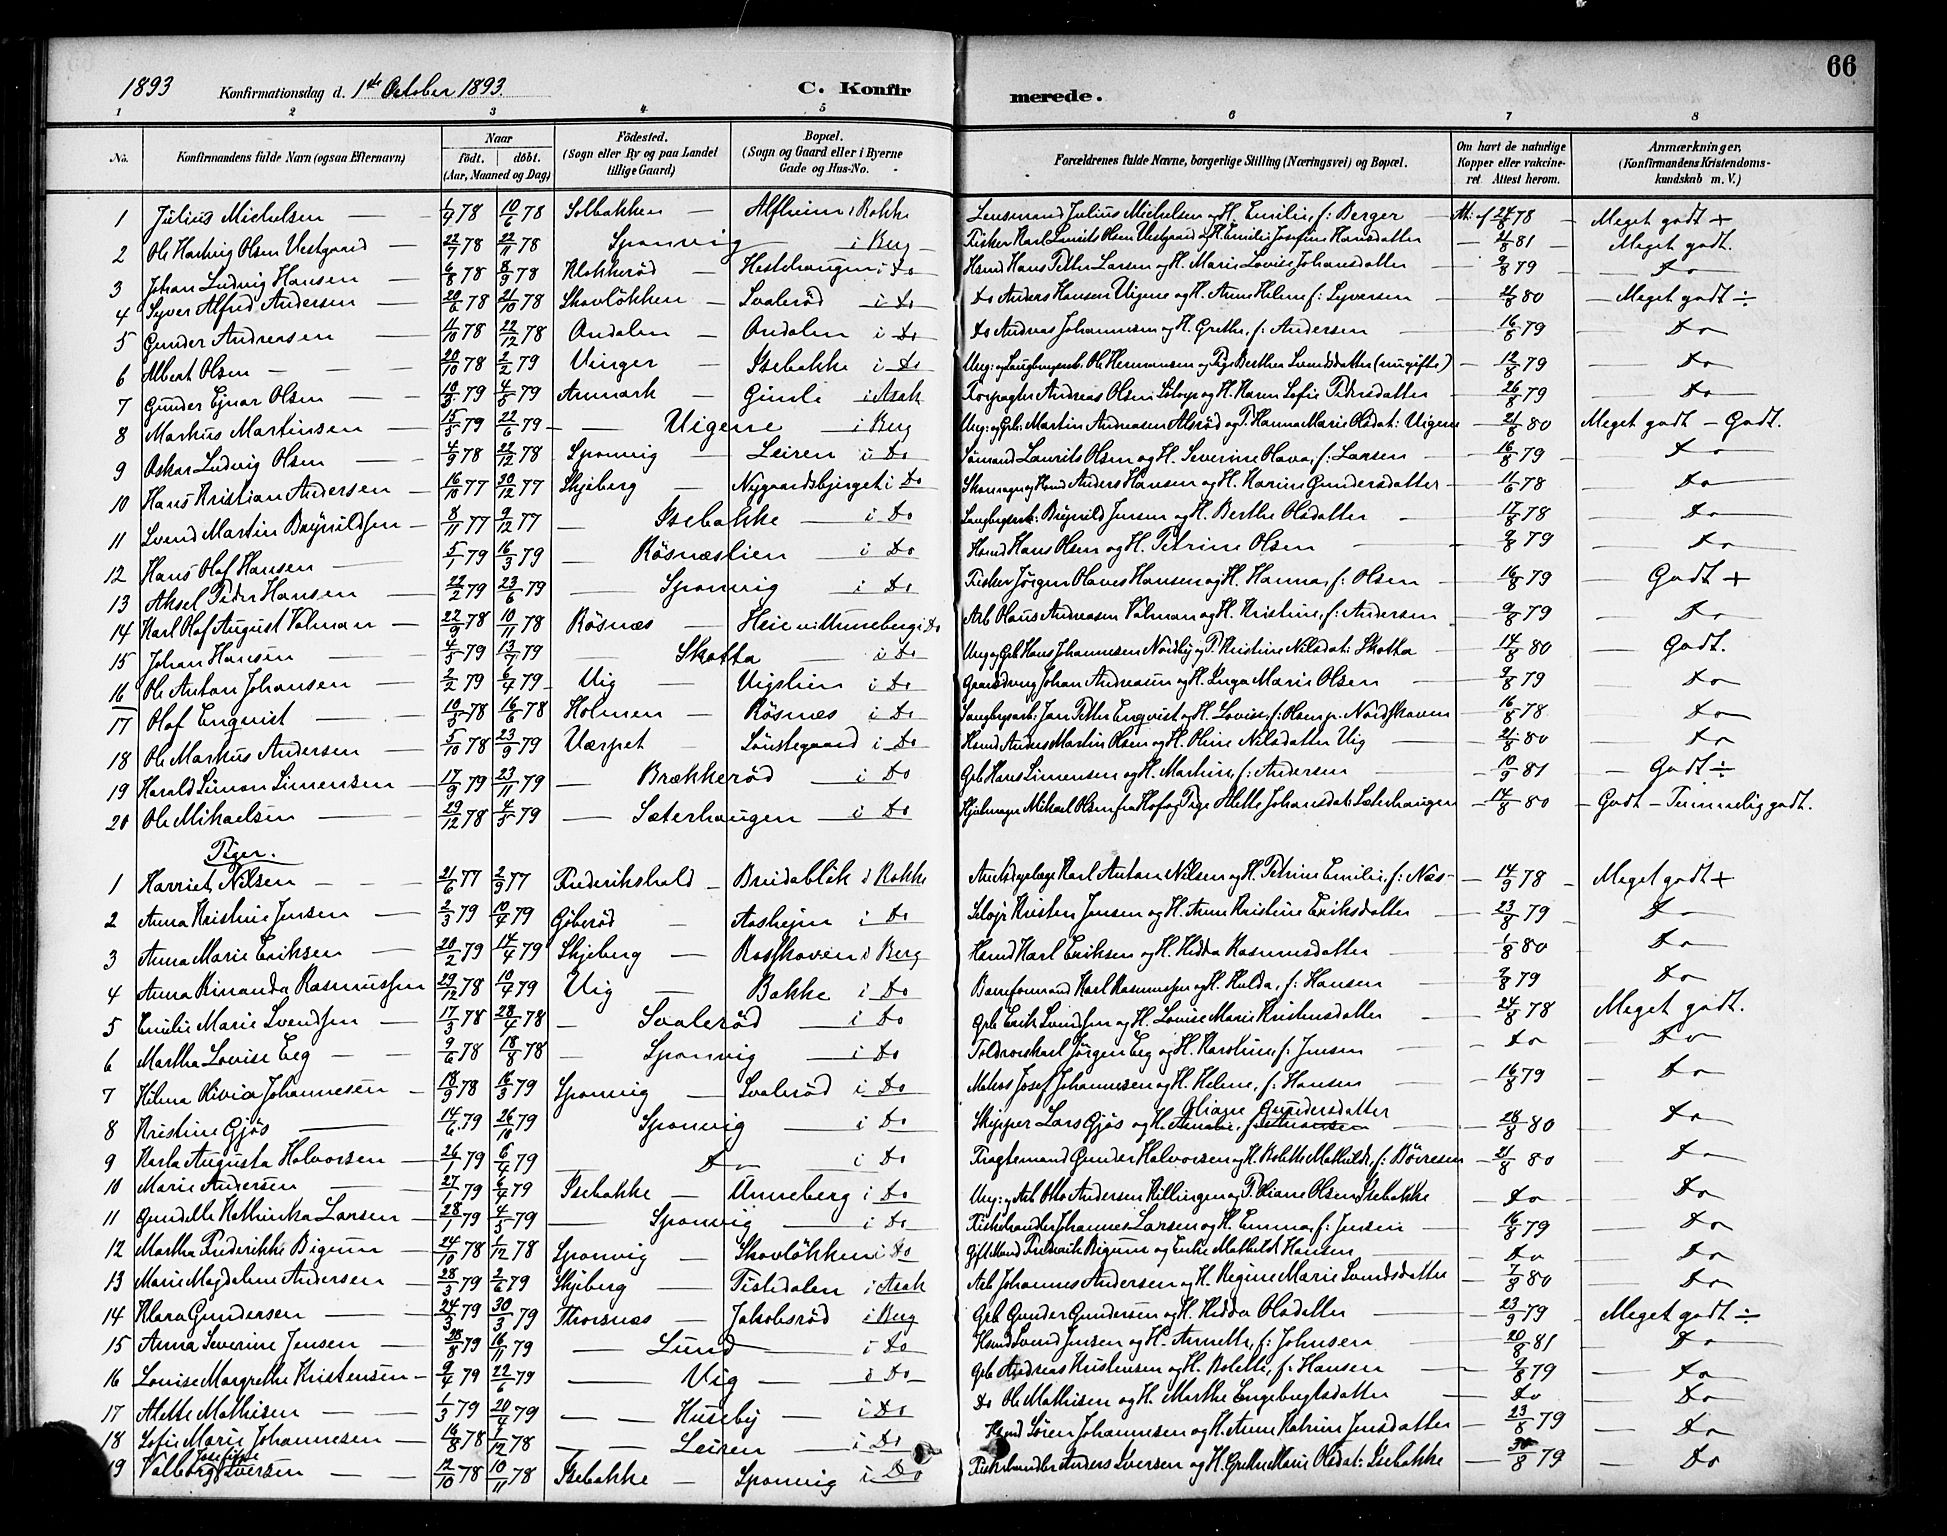 66
1893 Konfirmationsdag d. 1ste October 1893. C. Konfirmerede.
1 2 3 4 5 6 7 8
No. Konfirmandens fulde Navn (ogsaa Efternavn) Naar født. døbt. (Aar, Maaned og Dag) Fødested. (Sogn eller By og paa Landet tillige Gaard) Bopæl. (Sogn og Gaard eller i Byerne Gade og Hus-No. Forældrenes fulde Navne, borgerlige Stilling (Næringsvei) og Bopæl. Om havt de naturlige Kopper eller vakcineret. Attest herom. Anmærkninger, (Konfirmandens Kristendomskundskab m. V.)
1 Julius Michelsen 1/9 78 10/6 78 Solbakken Alfheim i Rokke Lensmand Julius Michelsen og H. Emilie, f: Berger 24/8 78 Meget godt +
2 Ole Hartvig Olsen Vestgaard 22/7 78 22/11 78 Sponvig i Berg Fisker Karl Laurits Olsen Vestgaard og H. Emilie Josefine Hansdatter 21/8 81 Meget godt.
3 Johan Ludvig Hansen 6/8 78 8/9 78 Klokkerød Hestehaugen i Do Hsmd Hans Petter Larsen og H. Marie Lovise Johansdatter 9/8 79 Do
4 Syver Alfred Andersen 20/6 78 21/10 78 Skovløkken Svalerød i Do Do Anders Hansen Vigene og H. Anne Helene f: Syversen 21/8 80 Meget godt ÷
5 Gunder Andreasen 11/10 78 22/12 78 Ondalen Ondalen i Do Do Andreas Johannesen og H. Grethe, f: Andersen 16/8 79 Do
6 Albert Olsen 20/10 78 2/2 79 Vinger Isebakke i Do Ung: og Ole Hermansen og Pige Berthea Svendsdatter (nu gifte) 12/8 79 Do
7 Gunder Ejnar Olsen 10/3 79 4/5 79 Aremark Gimle i Asak Forpagter Andreas Olsen og H. Karen Sofie Pedersdatter 26/8 79 Do
8 Markus Martinsen 15/5 79 22/6 79 Vigene i Berg Ung: og Grb: Martin Andreasen Alsrød og P. Hanna Marie Olsdat: Vigene 21/8 80 Meget godt - Godt.
9 Oskar Ludvig Olsen 4/9 78 22/12 78 Sponvig Leiren i Do Sømand Laurits Olsen og H. Severine Olava, f: Larsen 16/8 79 Do
10 Hans Kristian Andersen 16/10 77 20/12 77 Skjeberg Nygaardsbjerget i Do Skomager og Hsmd Anders Hansen og H. Karine Gundersdatter 11/6 78 Do
11 Svend Martin Brynildsen 8/11 77 9/12 77 Isebakke i Do Brynild Jensen og H. Berthe Olsdatter 17/8 78 Do
12 Hans Olaf Hansen 5/1 79 16/3 79 Røsneslien i Do Hsmd Hans Olsen og H. Petrine Olsen 9/8 79 Do
13 Aksel Peder Hansen 22/2 79 23/6 79 Sponvig i Do Fisker Jørgen Olaves Hansen og H. Hanna, f: Olsen 16/8 79 Godt +
14 Karl Olaf August Valman 22/9 78 10/11 78 Røsnæs Heie u. Unneberg i Do Arb Olaus Andreasen Valman og H. Kristine, f: Andersen 9/8 79 Do
15 Johan Hansen 4/5 79 13/7 79 Skotta i Do Ung og Grb Hans Johannesen Nordby og P. Kristine Nilsdat: Skotta 14/8 80 Godt.
16 Ole Anton Johansen 2/2 79 6/4 79 Vig Viglien i Do Gaardbrug Johan Andreasen og H. Inga Marie Olsen 9/8 79 Do
17 Olaf Enqvist 10/5 78 16/6 78 Holmen Røsnæs i Do Jan Petter Enqvist og H. Lovise, f: Nordskoven 16/8 78 Do
18 Ole Markus Andersen 5/10 78 23/9 79 Værpet i Do Hsmd Anders Martin Olsen og H. Oline Nilsdatter Vig 21/8 80 Do
19 Harald Simon Simensen 17/9 79 23/11 79 Brækkerød i Do Grb Hans Simensen og H. Martine, f: Andersen 10/9 81 Godt ÷
20 Ole Mikaelsen 29/12 78 4/5 79 Sæterhaugen i Do Mikael Olsen fra Hof og Pige Alette Johansdat: Sæterhaugen 14/8 80 Godt - Temmelig godt.
Piger.
1 Harriet Nilsen 21/6 77 2/9 77 Frederikshald Breidablik i Rokke Karl Anton Nilsen og H. Petrine Emilie, f: Næs 14/9 78 Meget godt +
2 Anna Kristine Jensen 2/3 79 10/4 79 Gøberød Aashejm i Do Selvejr Kristen Jensen og H. Anne Kristine Eriksdatter 23/8 79 Do
3 Anna Marie Eriksen 20/2 79 14/4 79 Skjeberg i Berg Hsmd Karl Eriksen og H. Hedda Rasmusdatter 1/8 80 Do
4 Anna Rinanda Rasmussen 29/12 78 10/4 79 Vig Bakke i Do Karl Rasmussen og H. Hulda, f: Hansen 9/8 79 Do
5 Emilie Marie Svendsen 17/3 78 28/4 78 Svalerød i Do Grb Erik Svendsen og H. Lovise Marie Kristensdatter 24/8 78 Meget godt.
6 Martha Lovise Eeg 9/6 78 18/8 78 Sponvig i Do Toldroerskarl Jørgen Eeg og H. Karoline, f: Jensen Do Do
7 Helma Olivia Johannesen 18/9 78 16/3 79 Sponvig Svalerød i Do Matros Josef Johannesen og H. Helene, f: Hansen 16/8 79 Do
8 Kristine Gjøs 14/6 79 26/10 79 Sponvig i Do Skipper Lars Gjøs og H. Oliane Gundersdatter 28/8 80 Do
9 Karla Augusta Halvorsen 26/1 79 6/4 79 Do i Do Fragtemand Gunder Halvorsen og H. Bolette Mathilde, f: Børresen 21/8 80 Do
10 Marie Andersen 27/1 79 6/4 79 Isebakke Unneberg i Do Ung: og Arb Otto Andersen Killingen og P. Oliane Olsen Isebakke Do Do
11 Gundelle Kathinka Larsen 28/1 79 4/5 79 Sponvig i Do Fiskehandler Johannes Larsen og H. Emma, f: Jensen 16/8 79 Do
12 Martha Frederikke Bigum 24/10 78 1/12 78 Sponvig Skovløkken i Do Gift Mand Frederik Bigum og Enke Mathilde Hansen Do Do
13 Marie Magdalene Andersen 28/3 79 2/6 79 Skjeberg Tistedalen i Asak Arb Johannes Andersen og H. Regine Marie Svendsdatter 7/8 80 Do
14 Klara Gundersen 24/3 79 30/3 79 Thorsnæs Jakobsrød i Berg Grb Gunder Gundersen og H. Hedda Olsdatter 23/9 79 Meget godt ÷
15 Anna Severine Jensen 28/8 79 16/11 79 Lund i Do Hsmd Svend Jensen og H. Annette, f: Johnsen 20/8 81 Do
16 Lovise Margrethe Kristensen 9/4 79 22/6 79 Vig i Do Grb Andreas Kristensen og H. Bolette, f: Hansen 9/8 79 Do
17 Alette Mathisen 1/3 79 20/4 79 Huseby i Do Do Ole Mathisen og H. Marthe Engebregtsdatter Do Do
18 Sofie Marie Johannesen 16/8 78 1/12 78 Leiren i Do Hsmd Søren Johannesen og H. Anne Katrine Jensdatter 23/8 79 Do
19 Valborg Josefine Iversen 12/10 78 10/11 78 Isebakke Sponvig i Do Fiskehandler Anders Iversen og H. Grethe Marie Olsdat: Isebakke 30/8 79 Do